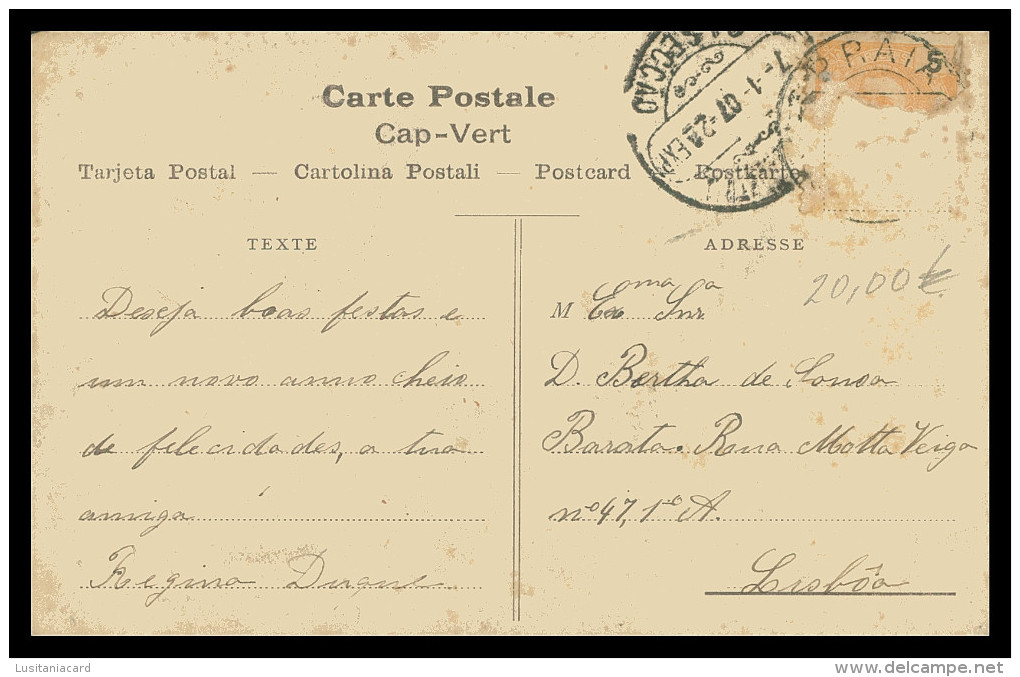 Carte Postale
Cap-Vert
Tarjeta Postal — Cartolina Postali — Postcard Postkarte
PRAIA
SECCÃO
7-1-07-2A
TEXTE
Deseja boas festas e
um novo anno cheio
de felecidades, a tua
amiga
Regina
ADRESSE
20,00€
M Exma Snra
D. Bertha de Sousa
Barata. Rua Motta Veiga
nº 47, 1º A.
Lisbôa
Lusitaniacard
www.delcampe.net